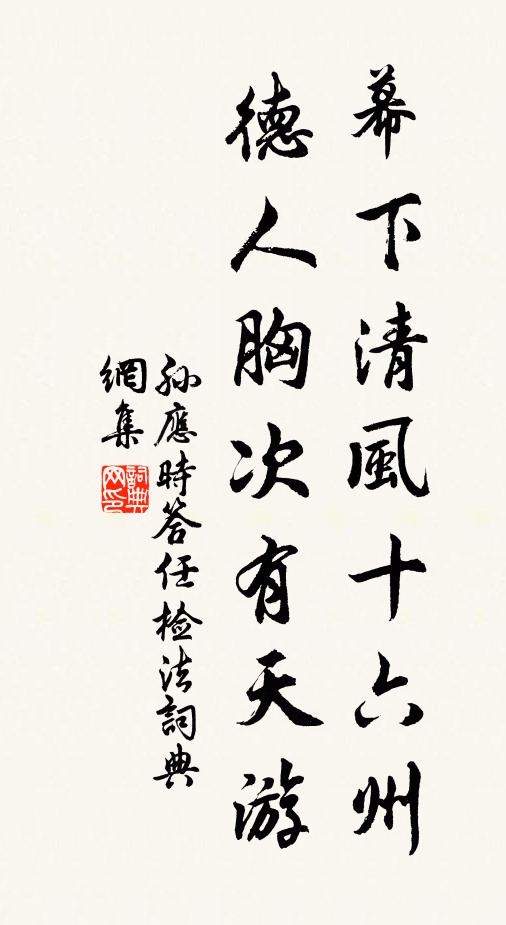 幕下清風十六州
德人胸次有天游
孙應時答任檢法詞典
網集
詞典網印